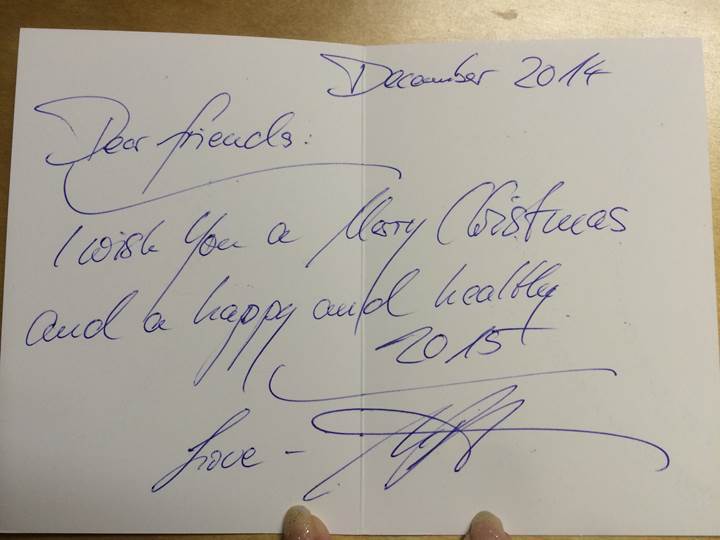 December 2014
Dear friends:
I wish You a Merry Christmas
and a happy and healthy
2015
Love -